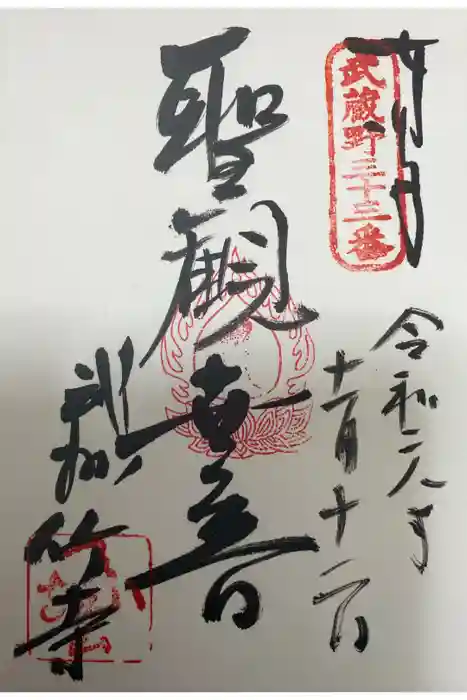 奉拝
武蔵野三十三番
令和元年
十一月十二日
聖観世音
武州
竹寺